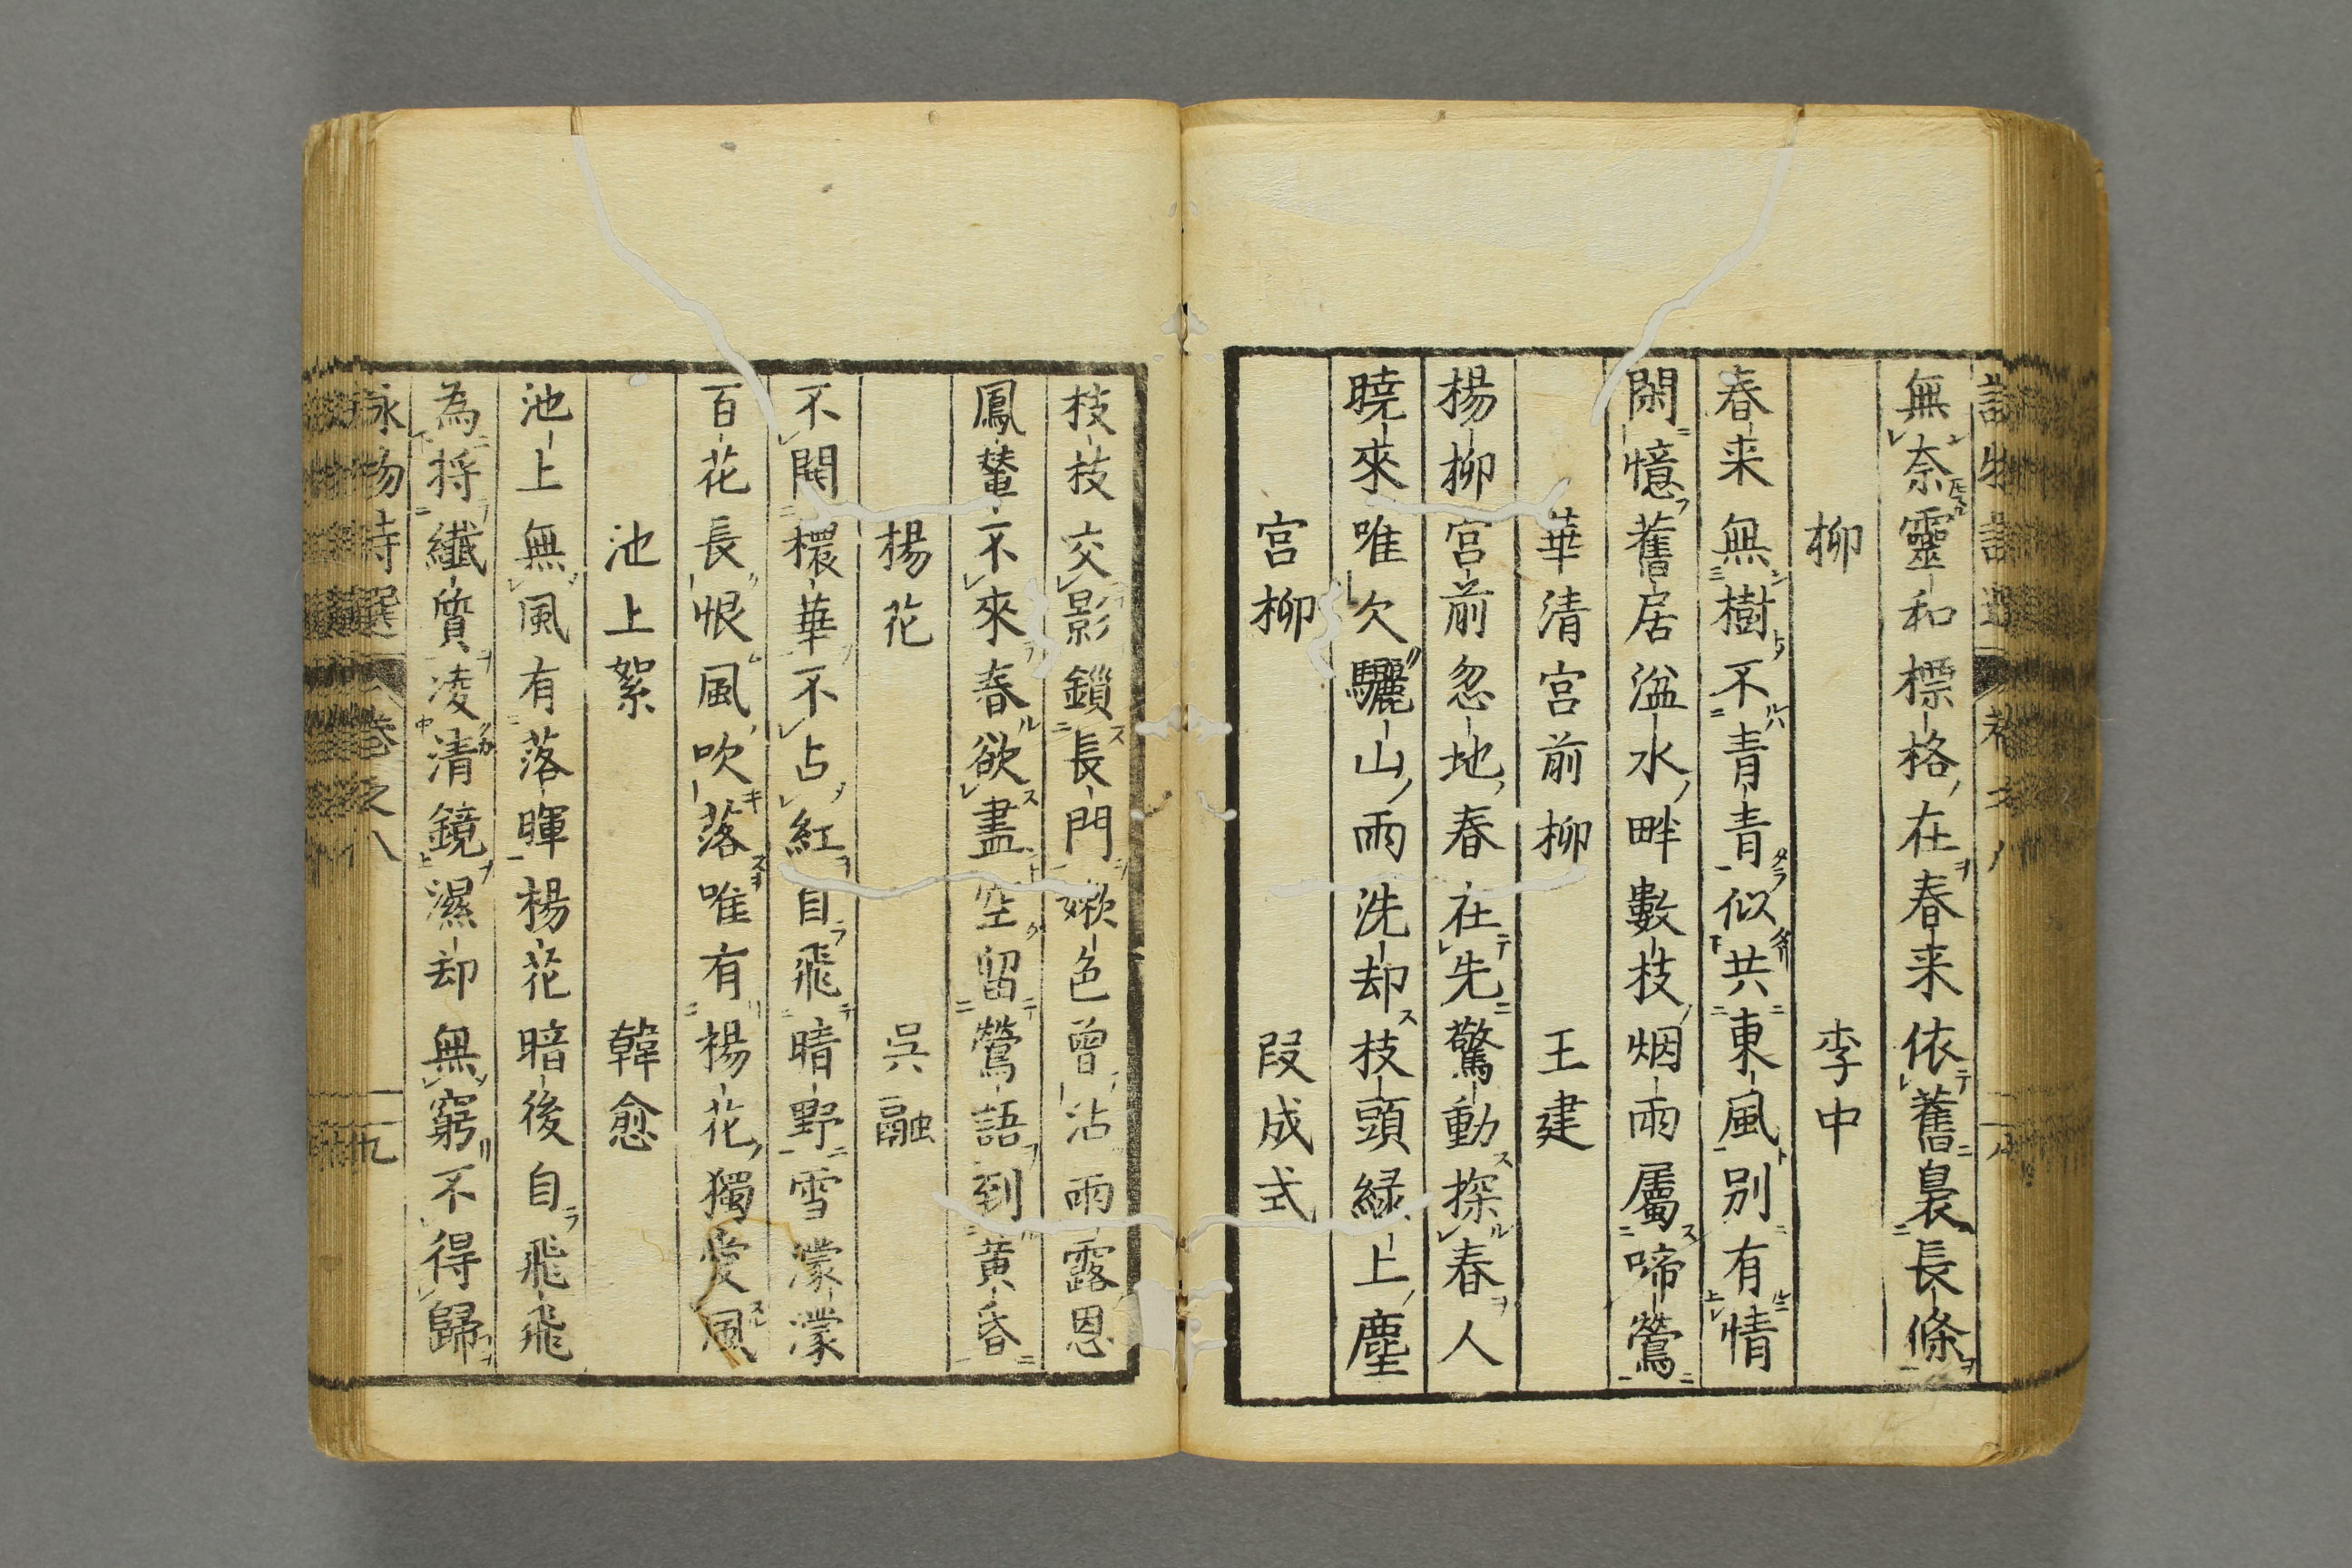 無奈靈和標格在春来依舊裊長條
柳 李中
春来無樹不青青似共東風别有情
閑憶舊居湓水畔數枝烟雨屬啼鶯
華清宮前柳 王建
楊柳宮前忽地春在先驚動探春人
曉來唯欠驪山雨洗却枝頭緑上塵
宮柳 段成式
枝枝交影鎖長門嫩色曾沾雨露恩
鳳輦不來春欲盡空留鶯語到黄昏
楊花 呉融
不鬭穠華不占紅自飛晴野雪濛濛
百花長恨風吹落唯有楊花獨愛風
池上絮 韓愈
池上無風有落暉楊花暗後自飛飛
為將纖質凌清鏡濕却無窮不得歸
詠物詩選 卷之八 十九